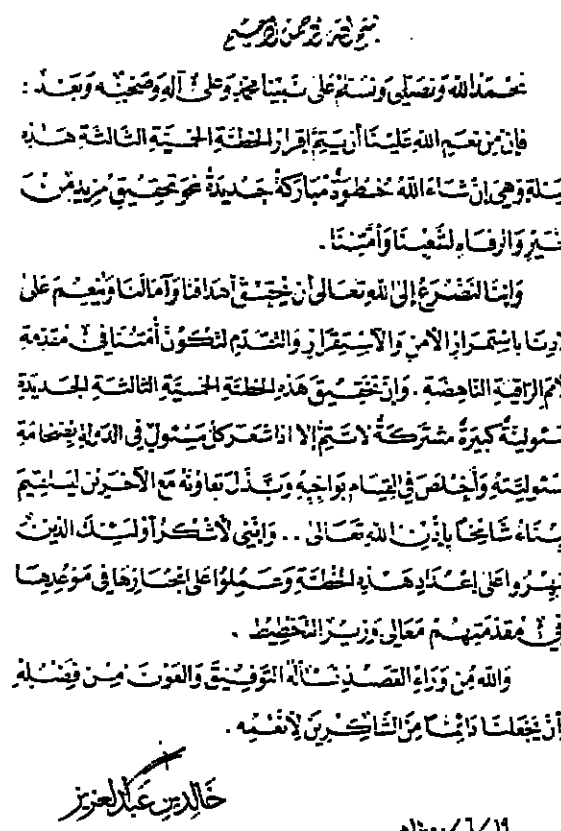 بسم الله الرحمن الرحيم
نحمد الله ونصلي ونسلم على نبينا محمد وعلى آله وصحبه وبعد :
فإن من نعم الله علينا أن يتم إقرار الخطة الخمسية الثالثة هذه
وهي إن شاء الله خطوة مباركة جديدة نحو تحقيق مزيد من
والرفاه لشعبنا وأمتنا .
وإننا لنضرع إلى الله تعالى أن يحقق أهدافنا وآمالنا وينعم على
باستمرار الأمن والاستقرار والتقدم لتكون أمتنا في مقدمة
الراقية الناهضة . وإن تحقيق هذه الخطة الخمسية الثالثة الجديدة
كبيرة مشتركة لا تتم إلا اذا شعر كل مسئول في الدولة بضخامة
وأخلص في القيام بواجبه وبذل تعاونه مع الآخرين ليستقيم
شامخا بإذن الله تعالى .. وإنني لأشكر أولئك الذين
على إعداد هذه الخطة وعملوا على إنجازها في موعدها
مقدمتهم معالي وزير التخطيط .
والله من وراء القصد نسأله التوفيق والعون من فضله
وأن يجعلنا دائما من الشاكرين لأنعمه .
خالد بن عبد العزيز